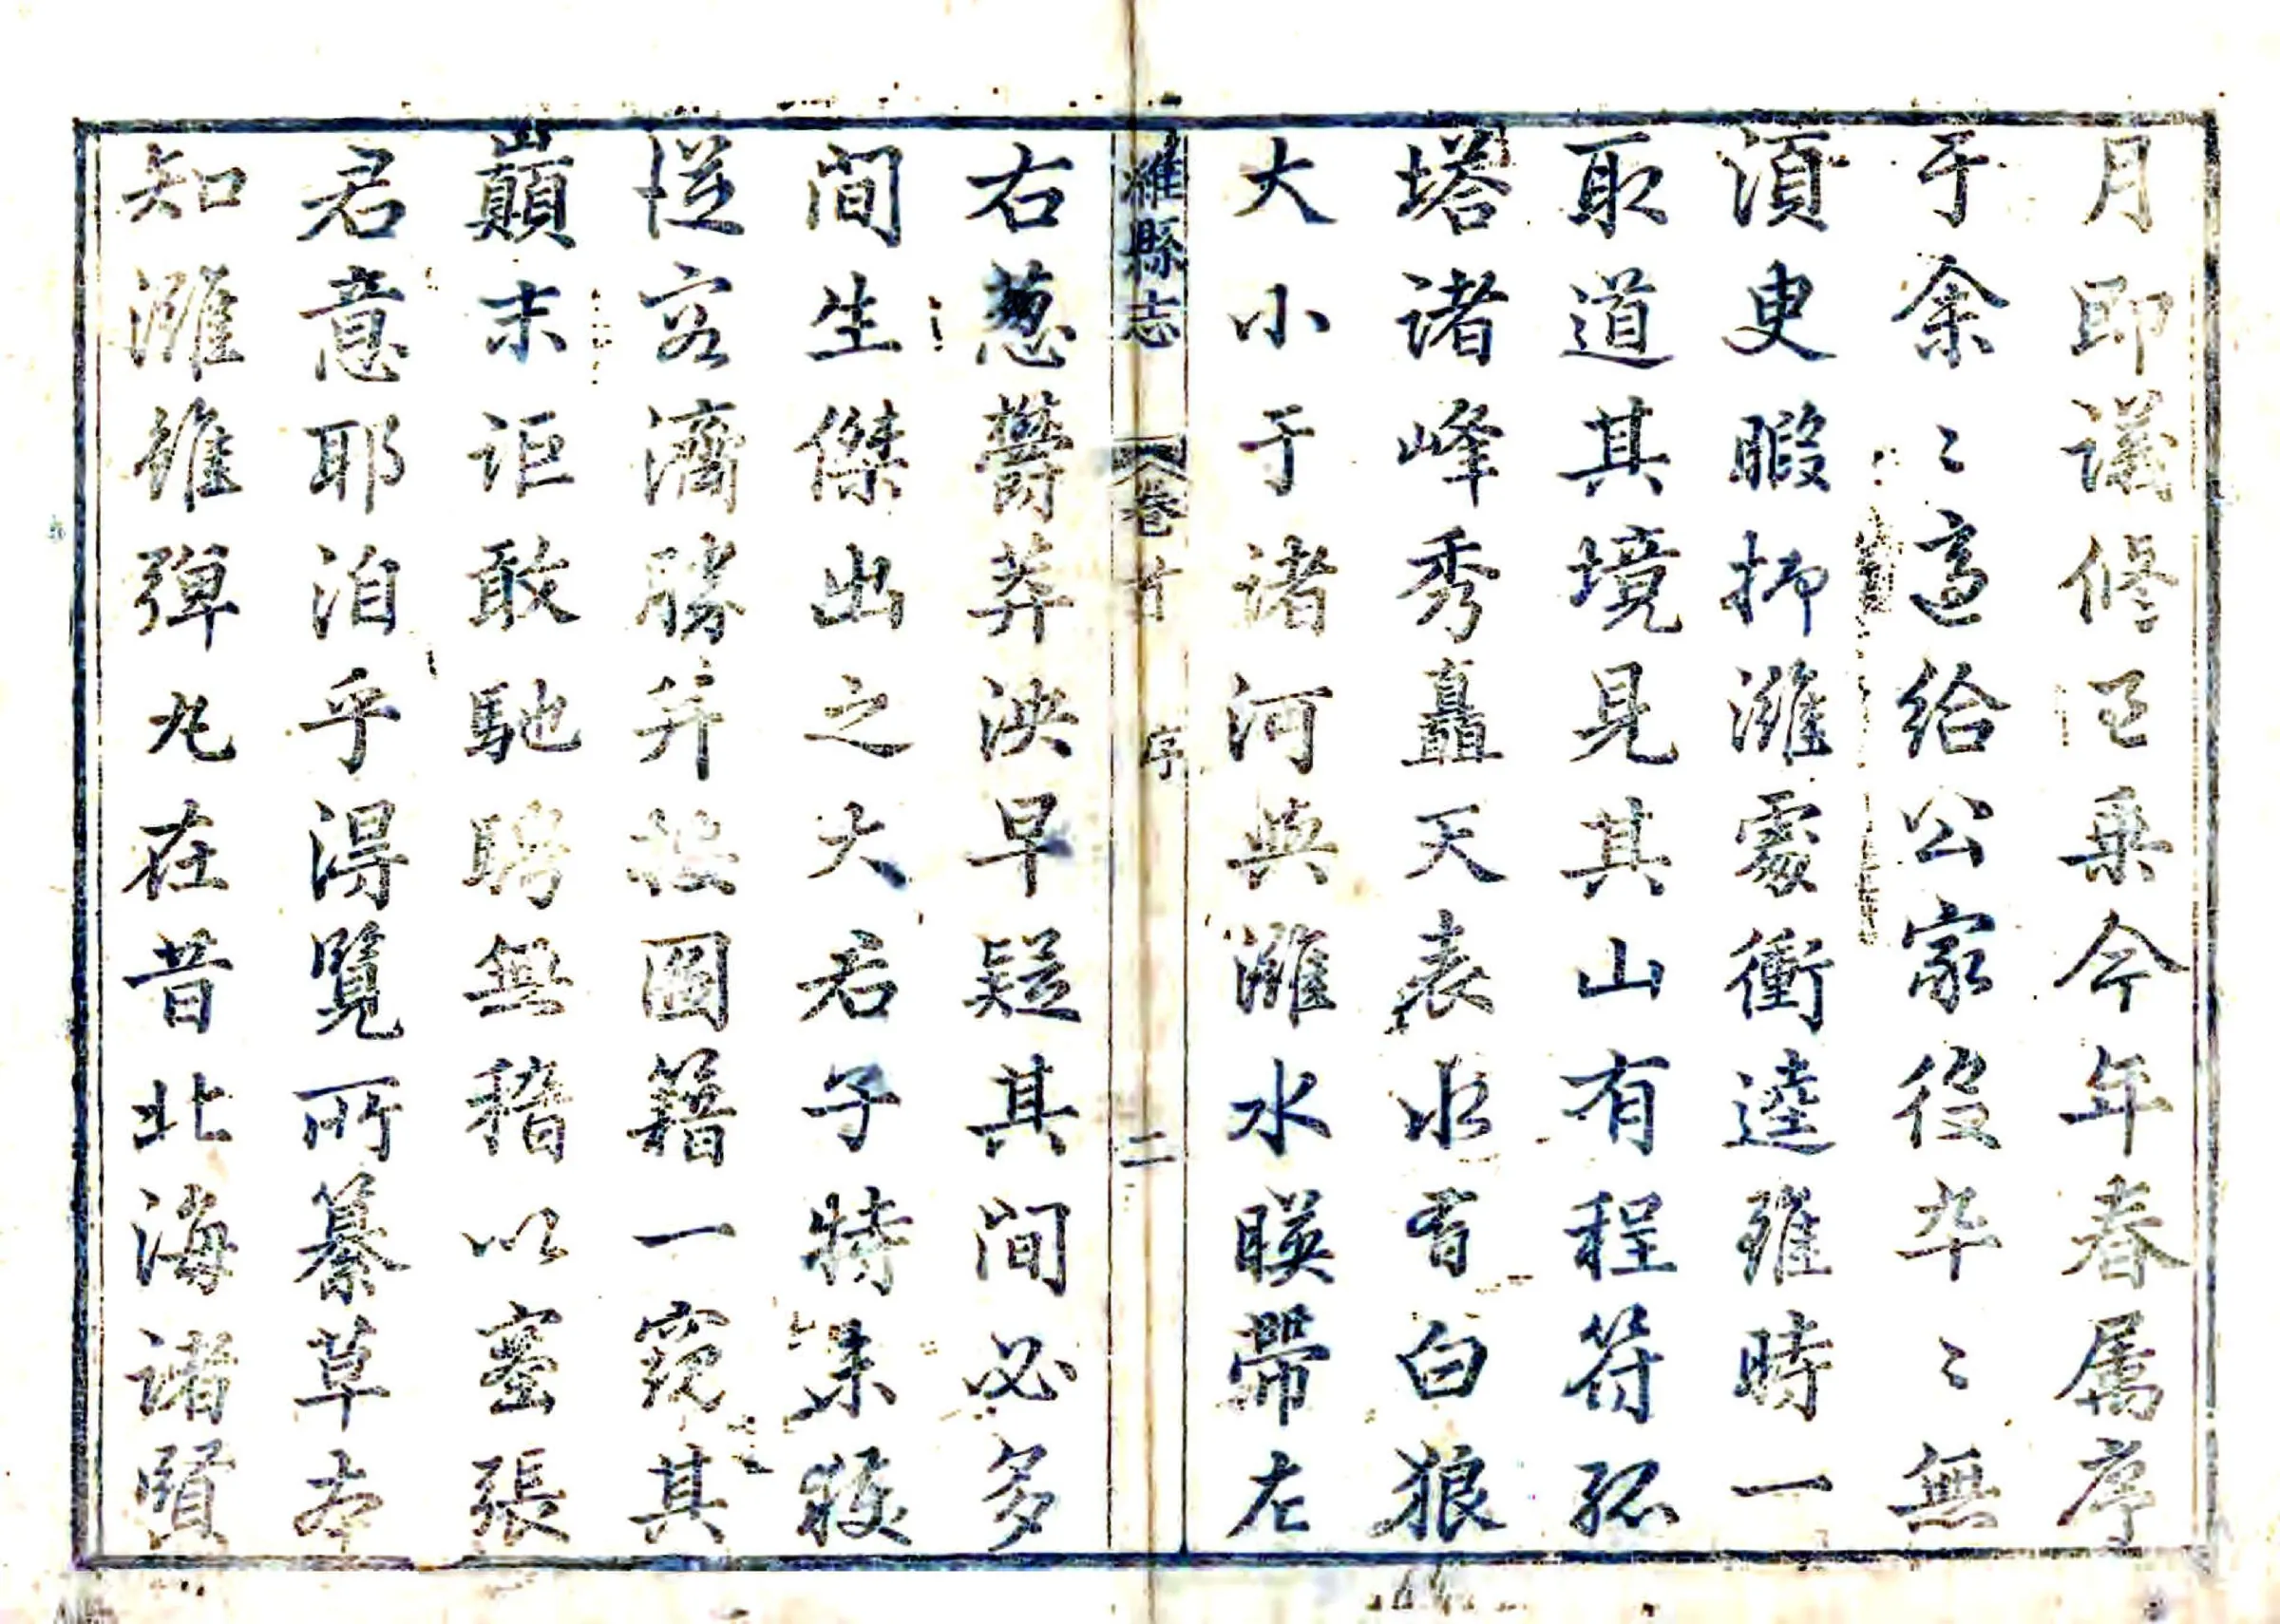 月即議修邑乗今年春属序
于余〻適給公家役卒〻無
湏叟暇抑濰處衝逵雖時一
取道其境見其山有程符孤
塔諸峰秀矗天表水有白狼
大小于諸河與濰水暎帶左
濰縣志 卷首 序 二
右葱欝莽泱早疑其间必多
间生傑出之大君子特未獲
從容濟勝并按圖籍一窺其
巔末詎敢馳騁無稽以塞張
君意耶洎乎得覽所纂草本
知濰雖彈丸在昔北海諸賢